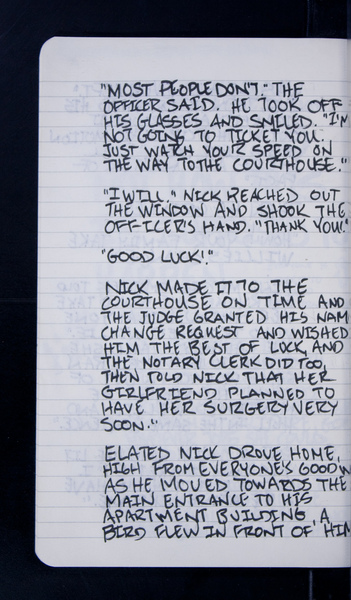 "MOST PEOPLE DON'T." THE
OFFICER SAID. HE TOOK OFF
HIS GLASSES AND SMILED. "I'M
NOT GOING TO TICKET YOU.
JUST WATCH YOUR SPEED ON
THE WAY TO THE COURTHOUSE."
"I WILL." NICK REACHED OUT
THE WINDOW AND SHOOK THE
OFFICER'S HAND. "THANK YOU."
"GOOD LUCK!"
NICK MADE IT TO THE
COURTHOUSE ON TIME AND
THE JUDGE GRANTED HIS NAM
CHANGE REQUEST AND WISHED
HIM THE BEST OF LUCK, AND
THE NOTARY CLERK DID TOO,
THEN TOLD NICK THAT HER
GIRLFRIEND PLANNED TO
HAVE HER SURGERY VERY
SOON."
ELATED NICK DROVE HOME,
HIGH FROM EVERYONE'S GOOD W
AS HE MOVED TOWARDS THE
MAIN ENTRANCE TO HIS
APARTMENT BUILDING, A
BIRD FLEW IN FRONT OF HIM